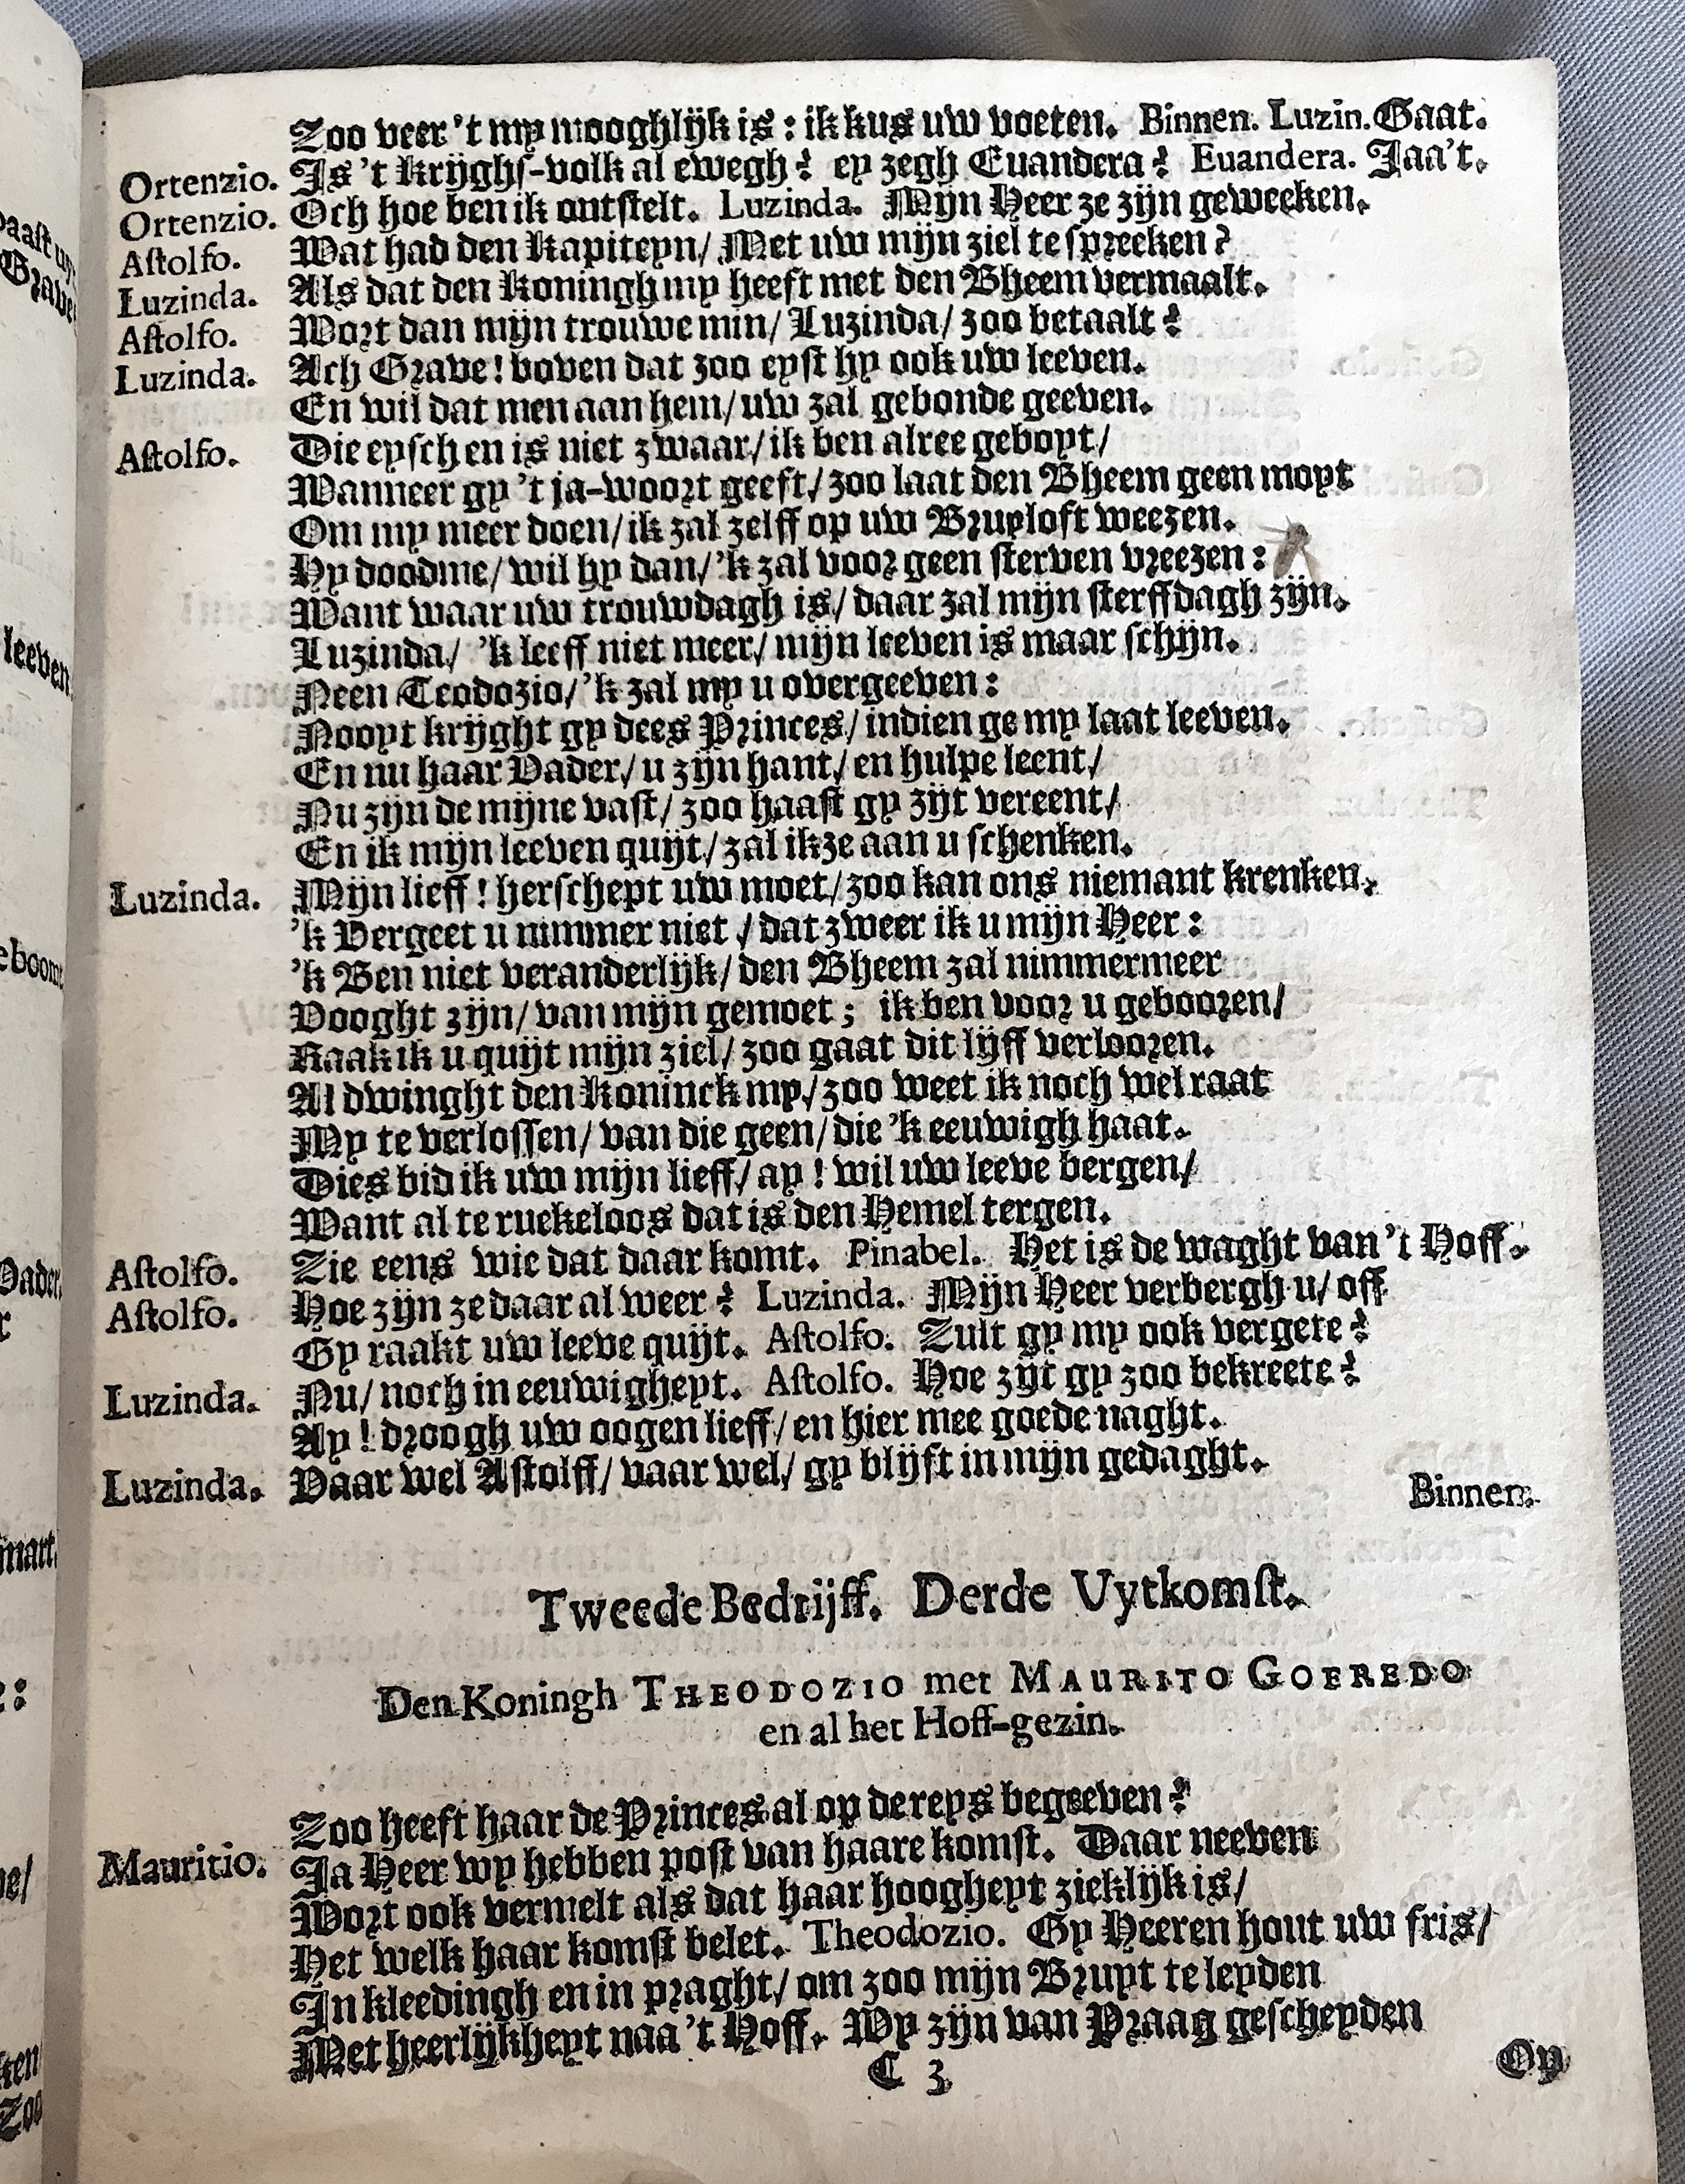 Zoo veer 't my mooghlijk is: ik kus uw voeten. Binnen. Luzin. Gaat.
Ortenzio. Is 't krijghs-volk al ewegh? ey zegh Euandera? Euandera. Jaa't.
Ortenzio. Och hoe ben ik ontstelt. Luzinda. Mijn Heer ze zijn geweeken.
Astolfo. Wat had den Kapiteyn/ Met uw mijn ziel te spreeken?
Luzinda. Als dat den Koningh my heeft met den Bheem vermaalt.
Astolfo. Wort dan mijn trouwe min/ Luzinda/ zoo betaalt?
Luzinda. Ach Grave! boven dat zoo eyst hy ook uw leeven.
En wil dat men aan hem/ uw zal gebonde geeven.
Astolfo. Die eyschen is niet zwaar/ ik ben alree geboyt/
Wanneer gy 't ja-woort geeft/ zoo laat den Bheem geen moyt
Om my meer doen/ ik zal zelff op uw Bruyloft weezen.
Hy doodme/ wil hy dan/ 'k zal voor geen sterven vreezen:
Want waar uw trouwdagh is/ daar zal mijn sterffdagh zijn.
Luzinda/ 'k leeff niet meer/ mijn leeven is maar schijn.
Neen Teodozio/ 'k zal my u overgeeven:
Nooyt krijght gy dees Princes/ indien ge my laat leeven.
En nu haar Vader/ u zijn hant/ en hulpe leent/
Nu zijn de mijne vast/ zoo haast gy zijt vereent/
En ik mijn leeven quijt/ zal ikze aan u schenken.
Luzinda. Mijn lieff! herschept uw moet/ zoo kan ons niemant krenken.
'k Vergeet u nimmer niet/ dat zweer ik u mijn Heer:
'k Ben niet veranderlijk/ den Bheem zal nimmermeer
Vooght zijn/ van mijn gemoet; ik ben voor u gebooren/
Raak ik u quijt mijn ziel/ zoo gaat dit lijff verlooren.
Al dwinght den Koninck my/ zoo weet ik noch wel raat
My te verlossen/ van die geen/ die 'k eeuwigh haat.
Dies bid ik uw mijn lieff/ ay! wil uw leeve bergen/
Want al te ruekeloos dat is den Hemel tergen.
Astolfo. Zie eens wie dat daar komt. Pinabel. Het is de waght van 't Hoff.
Astolfo. Hoe zijn ze daar al weer? Luzinda. Mijn Heer verbergh u/ off
Gy raakt uw leeve quijt. Astolfo. Zult gy my ook vergete?
Luzinda. Nu/ noch in eeuwigheyt. Astolfo. Hoe zijt gy zoo bekreete?
Ay! droogh uw oogen lieff/ en hier mee goede naght.
Luzinda. Vaar wel Astolff/ vaar wel/ gy blijft in mijn gedaght.
Binnen.
Tweede Bedrijff. Derde Uytkomst.
Den Koningh THEODOZIO met MAURITO GOFREDO
en al het Hoff-gezin.
Zoo heeft haar de Princes al op de reys begeeven?
Mauritio. Ja Heer wy hebben post van haare komst. Daar neeven
Wort ook vermelt als dat haar hoogheyt zieklijk is/
Het welk haar komst belet. Theodozio. Gy Heeren hout uw fris/
In kleedingh en in praght/ om zoo mijn Bruyt te leyden
Met heerlijkheyt naa 't Hoff. Wy zijn van Praag gescheyden
C 3
Op